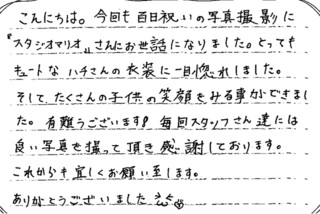 こんにちは。今回も百日祝いの写真撮影に
『スタジオマリオ』さんにお世話になりました。とっても
キュートなハチさんの衣装に一目惚れしました。
そして、たくさんの子供の笑顔をみる事ができまし
た。有難うございます！毎回スタッフさん達には
良い写真を撮って頂き感謝しております。
これからも宜しくお願い至します。
ありがとうございました